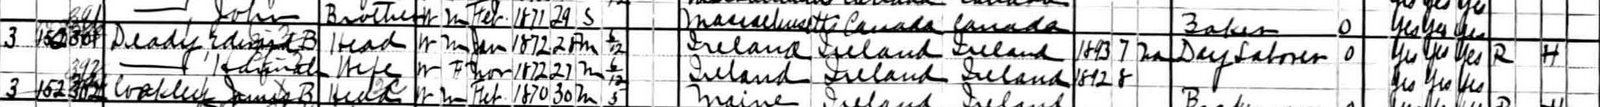 John Brother W M Feb 1871 29 S Massachusetts Canada Canada Baker 0 Yes Yes Yes
3 152 Deady Edward B Head W M Jan 1872 28 M 6/12 Ireland Ireland Ireland 1893 7 Na Day Laborer 0 Yes Yes Yes R H
— Wife W F Nov 1872 27 M 6/12 Ireland Ireland Ireland 1892 8 Yes Yes Yes
3 152 Coakley James B Head W M Feb 1870 30 M 5 Maine Ireland Ireland